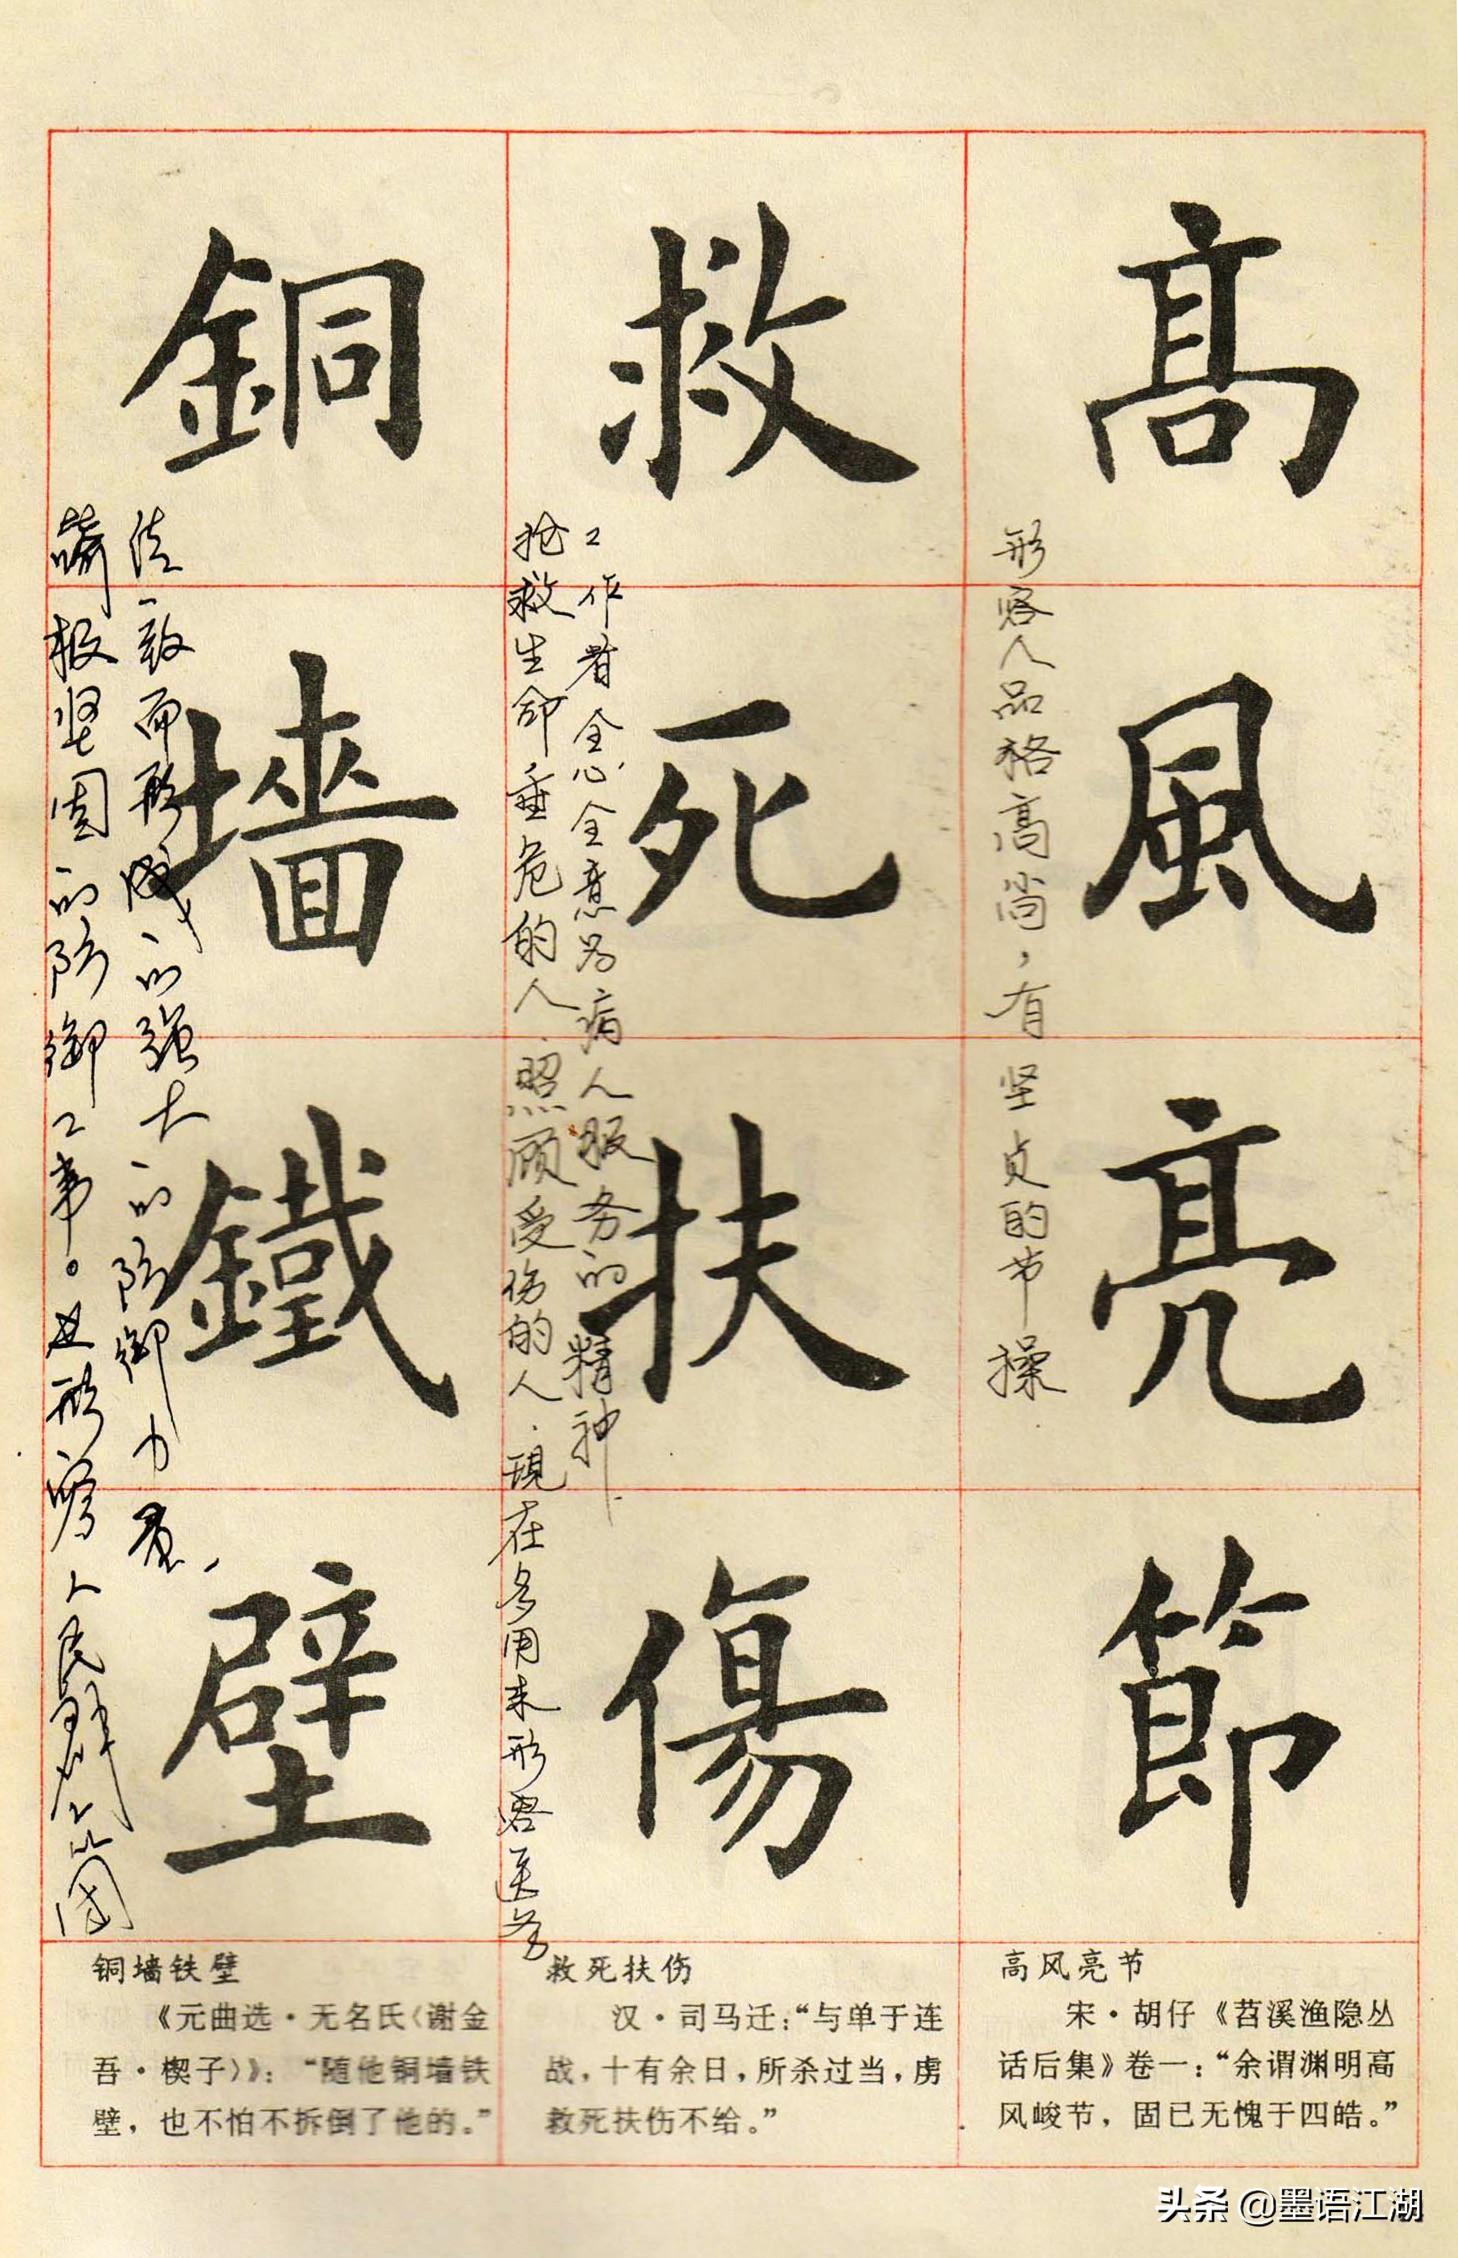 高風亮節
形容人品格高尚，有坚贞的节操
救死扶傷
抢救生命垂危的人.照顾受伤的人.現在多用来形容医务
工作者全心全意为病人服务的精神.
銅墙鐵壁
坚固的防御工事。也形容人民群众团
结一致而形成的强大的防御力量
高风亮节
宋·胡仔《苕溪渔隐丛
话后集》卷一：“余谓渊明高
风峻节，固已无愧于四皓。”
救死扶伤
汉·司马迁：“与单于连
战，十有余日，所杀过当，虏
救死扶伤不给。”
铜墙铁壁
《元曲选·无名氏〈谢金
吾·楔子〉》：“随他铜墙铁
壁，也不怕不拆倒了他的。”
头条 @墨语江湖